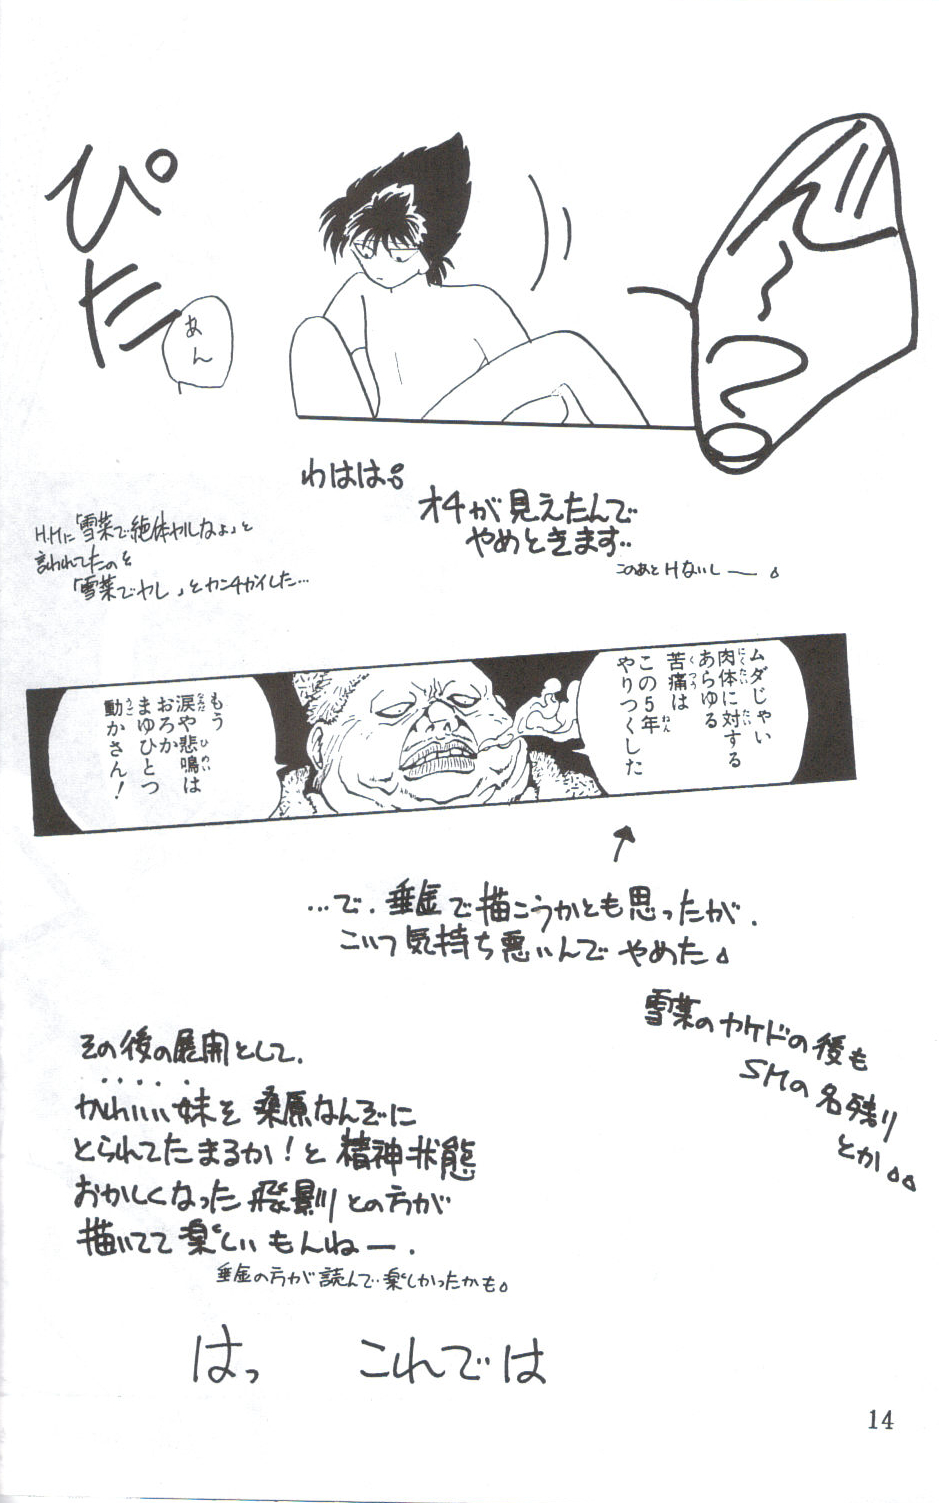 ぴた
あん
ん?
わはは。
オチが見えたんで
やめときます‥
このあとHないしー。
H.Hに「雪菜で絶体ヤルなよ」と
言われてたのを
「雪菜でヤレ」とカンチガイした…
ムダじゃい
肉体に対する
あらゆる
苦痛は
この5年
やりつくした
もう
涙や悲鳴は
おろか
まゆひとつ
動かさん!
…で、垂金で描こうかとも思ったが、
こいつ気持ち悪いんでやめた。
雪菜のヤケドの後も
SMの名残り
とか。。
その後の展開として、
かわいい妹を桑原なんぞに
とられてたまるか!と精神状態
おかしくなった飛影との方が
描いてて楽しいもんねー、
垂金の方が読んで楽しかったかも。
はっ これでは
14